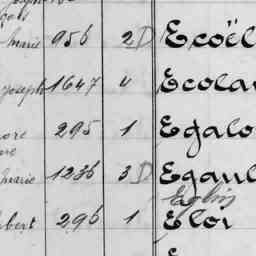 marie 956 2 D Ecoël
Joseph 1647 4 Ecola
295 1 Egalo
marie 1236 3 D Egaul
Eglin
bert 296 1 Eloi